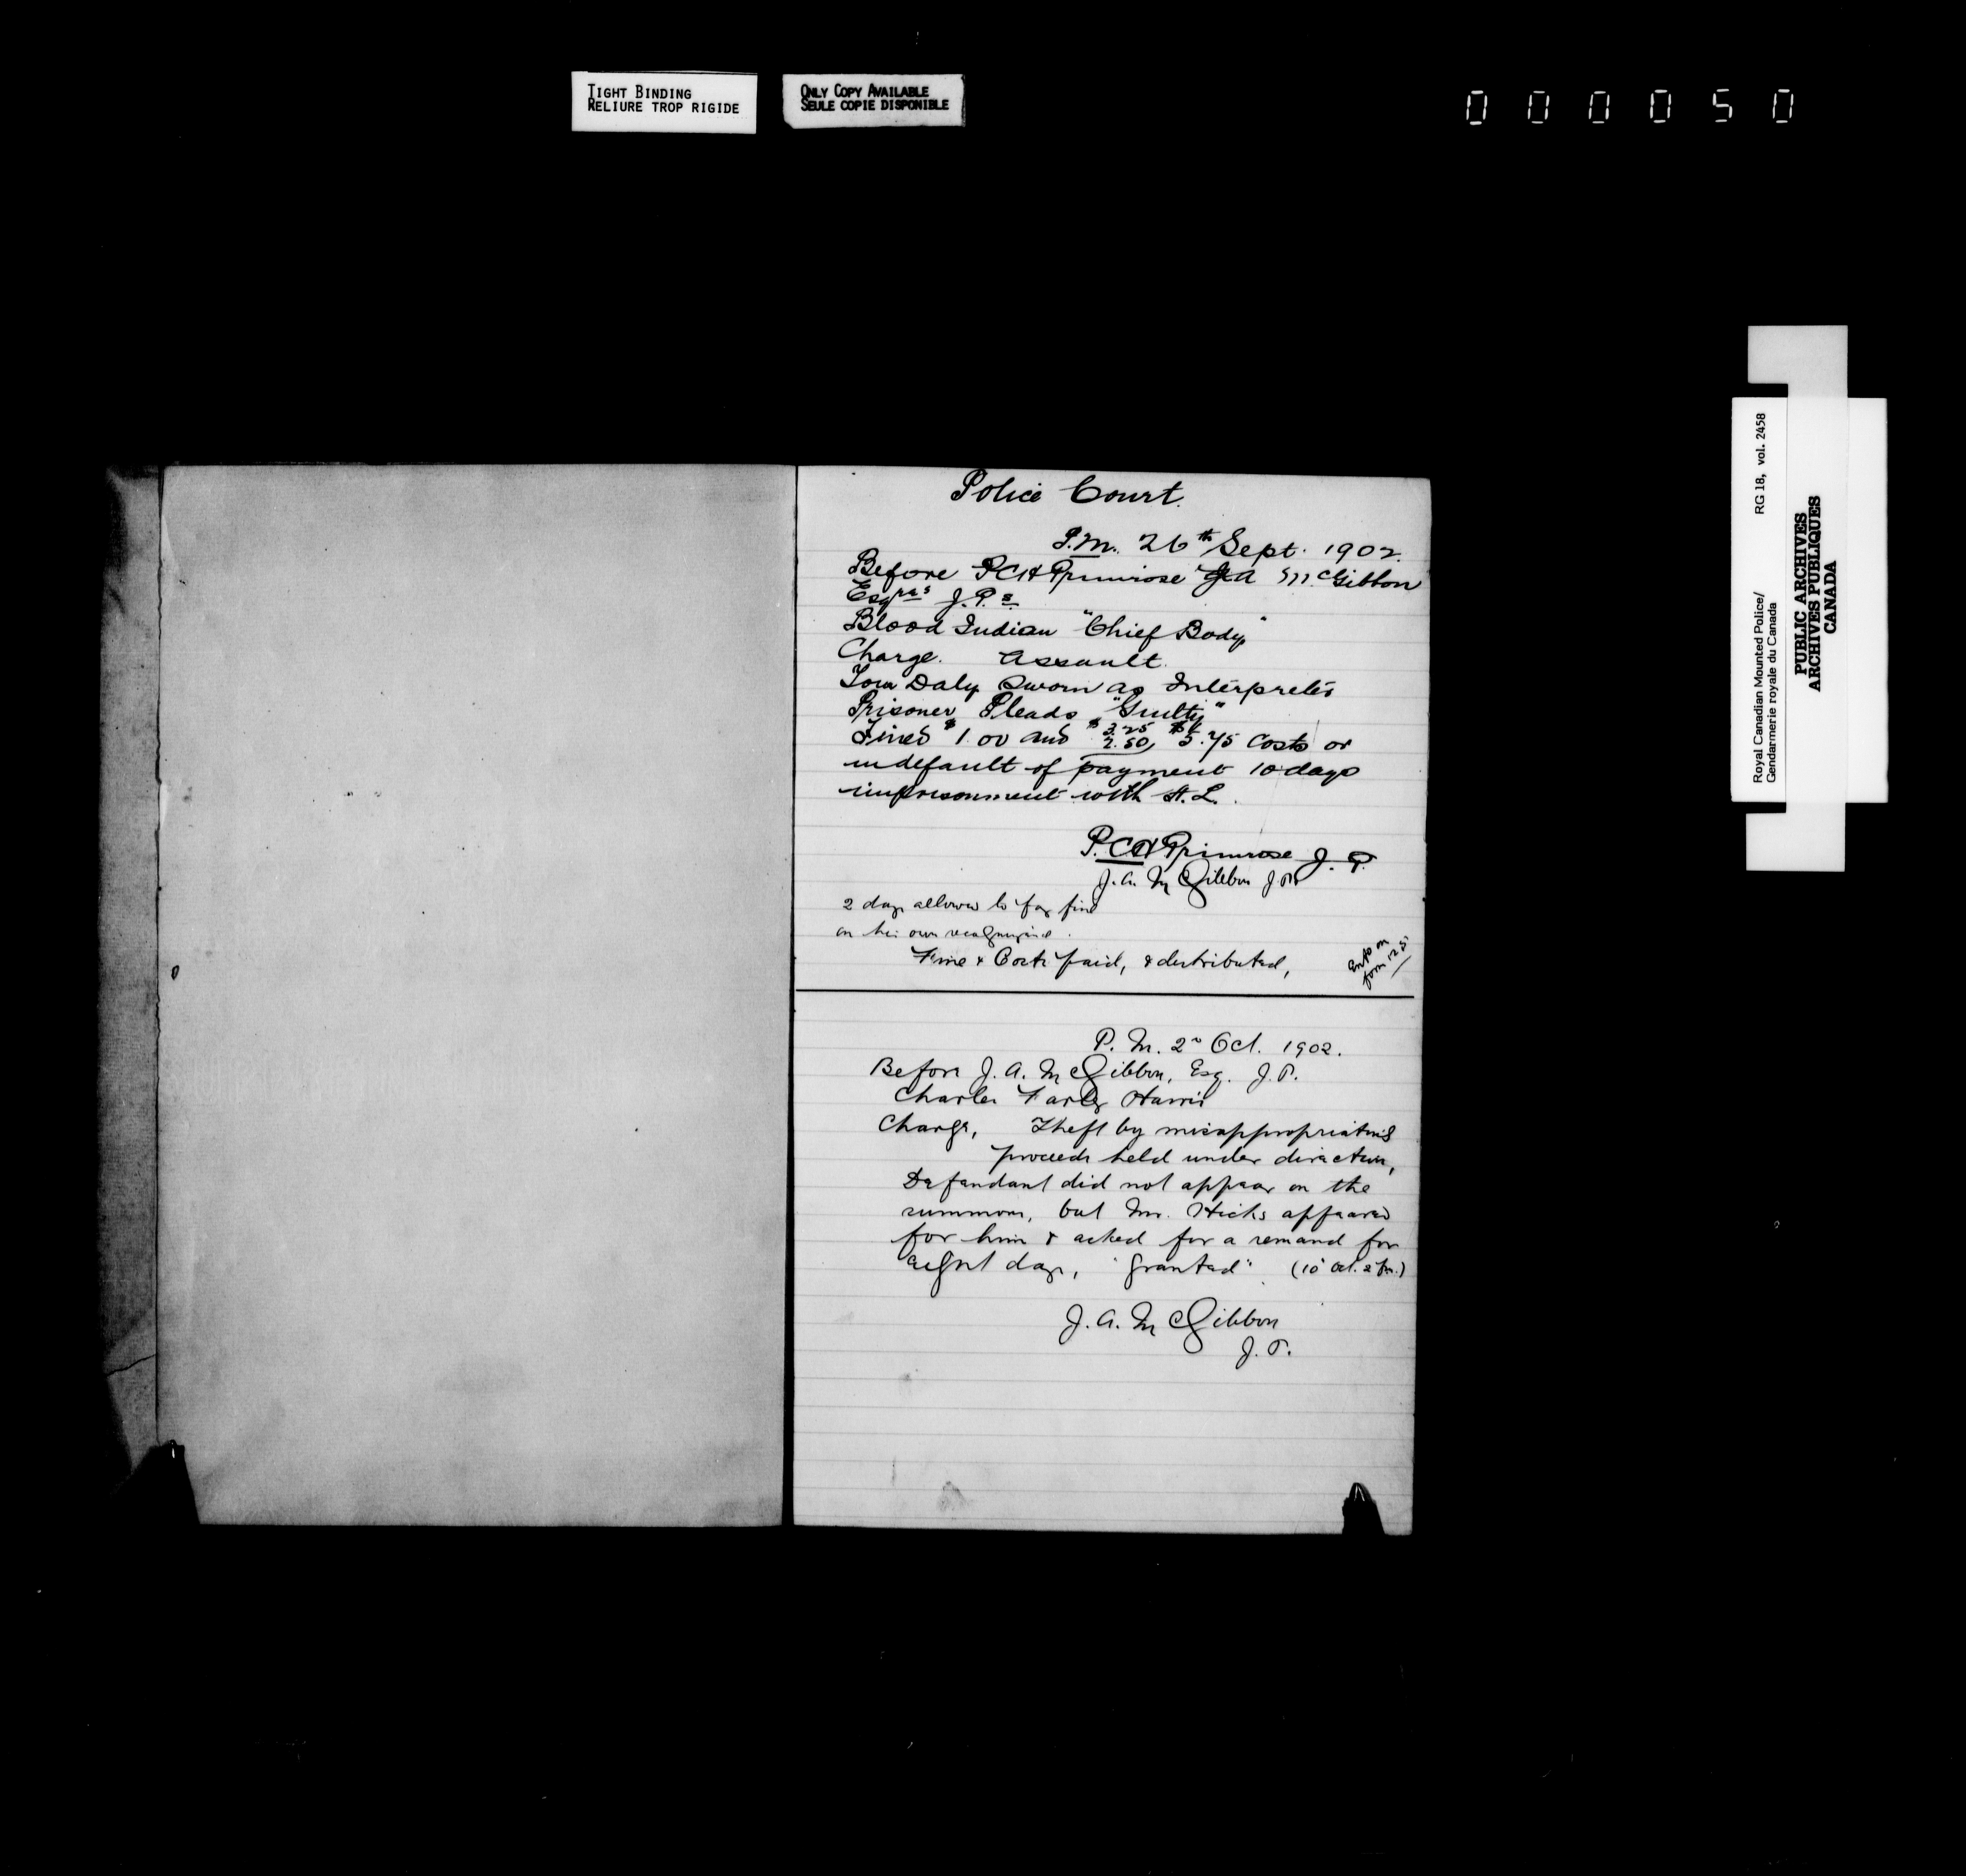 TIGHT BINDING
RELIURE TROP RIGIDE
ONLY COPY AVAILABLE
SEULE COPIE DISPONIBLE
000050
Royal Canadian Mounted Police/ RG 18, vol. 2458
Gendarmerie royale du Canada
PUBLIC ARCHIVES
ARCHIVES PUBLIQUES
CANADA
Police Court.
P.M. 26th Sept. 1902.
Before P.C.H. Primrose J A McGibbon
Esqres J.P.s
Blood Indian "Chief Body"
Charge. Assault.
Tom Daly Sworn as Interpreter
Prisoner Pleads "Guilty"
Fined $1.00 and $3.25 2.50, $5.75 Costs or
in default of payment 10 days
imprisonment with H.L.
P.C.H. Primrose J.P.
J.A. McGibbon J.P.
2 days allowed to pay fine
on his own recognizance.
Fine & Costs paid, & distributed,
form 125
P.M. 2nd Oct. 1902.
Before J.A. McGibbon, Esq. J.P.
Charles Farley Harris
Charge, Theft by misappropriating
proceeds held under direction,
Defendant did not appear on the
summons, but Mr. Hicks appeared
for him & asked for a remand for
eight days, "granted" (10 Oct. 2 p.m.)
J.A. McGibbon
J.P.